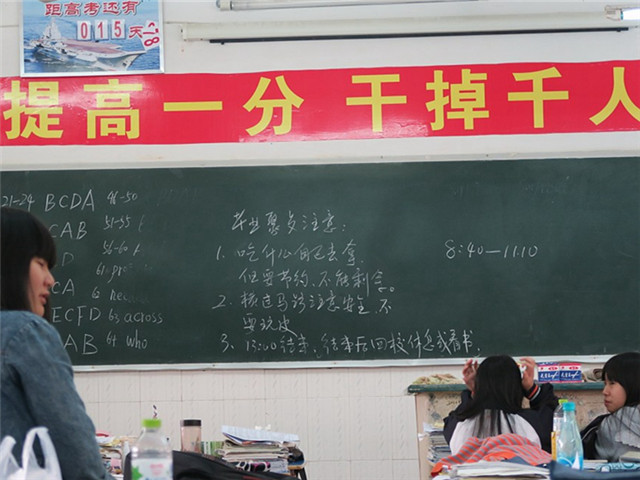 距高考还有
015天
提高一分 干掉千人
21-24 BCDA 46-50
CAB 51-55
D 56-60
CA 62
ECFD 63 across
AB 64 who
毕业聚餐注意:
1. 吃什么自己去拿,
但要节约,不能剩余。
2. 横过马路注意安全,不
要玩皮
3. 13:00结束,结束后回校休息或看书.
8:40—11:10